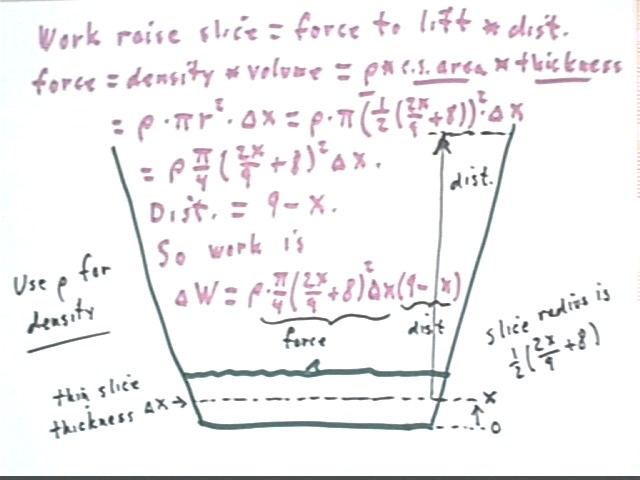 Work raise slice = force to lift * dist.
force = density * volume = ρ * c.s. area * thickness
= ρ · πr² · Δx = ρ · π(1/2(2x/9 + 8))² · Δx
= ρ π/4 (2x/9 + 8)² Δx.
Dist. = 9 - x.
So work is
ΔW = ρ · π/4 (2x/9 + 8)² Δx (9 - x)
force
dist
dist.
Use ρ for
density
slice radius is
1/2(2x/9 + 8)
thin slice
thickness Δx →
x
0